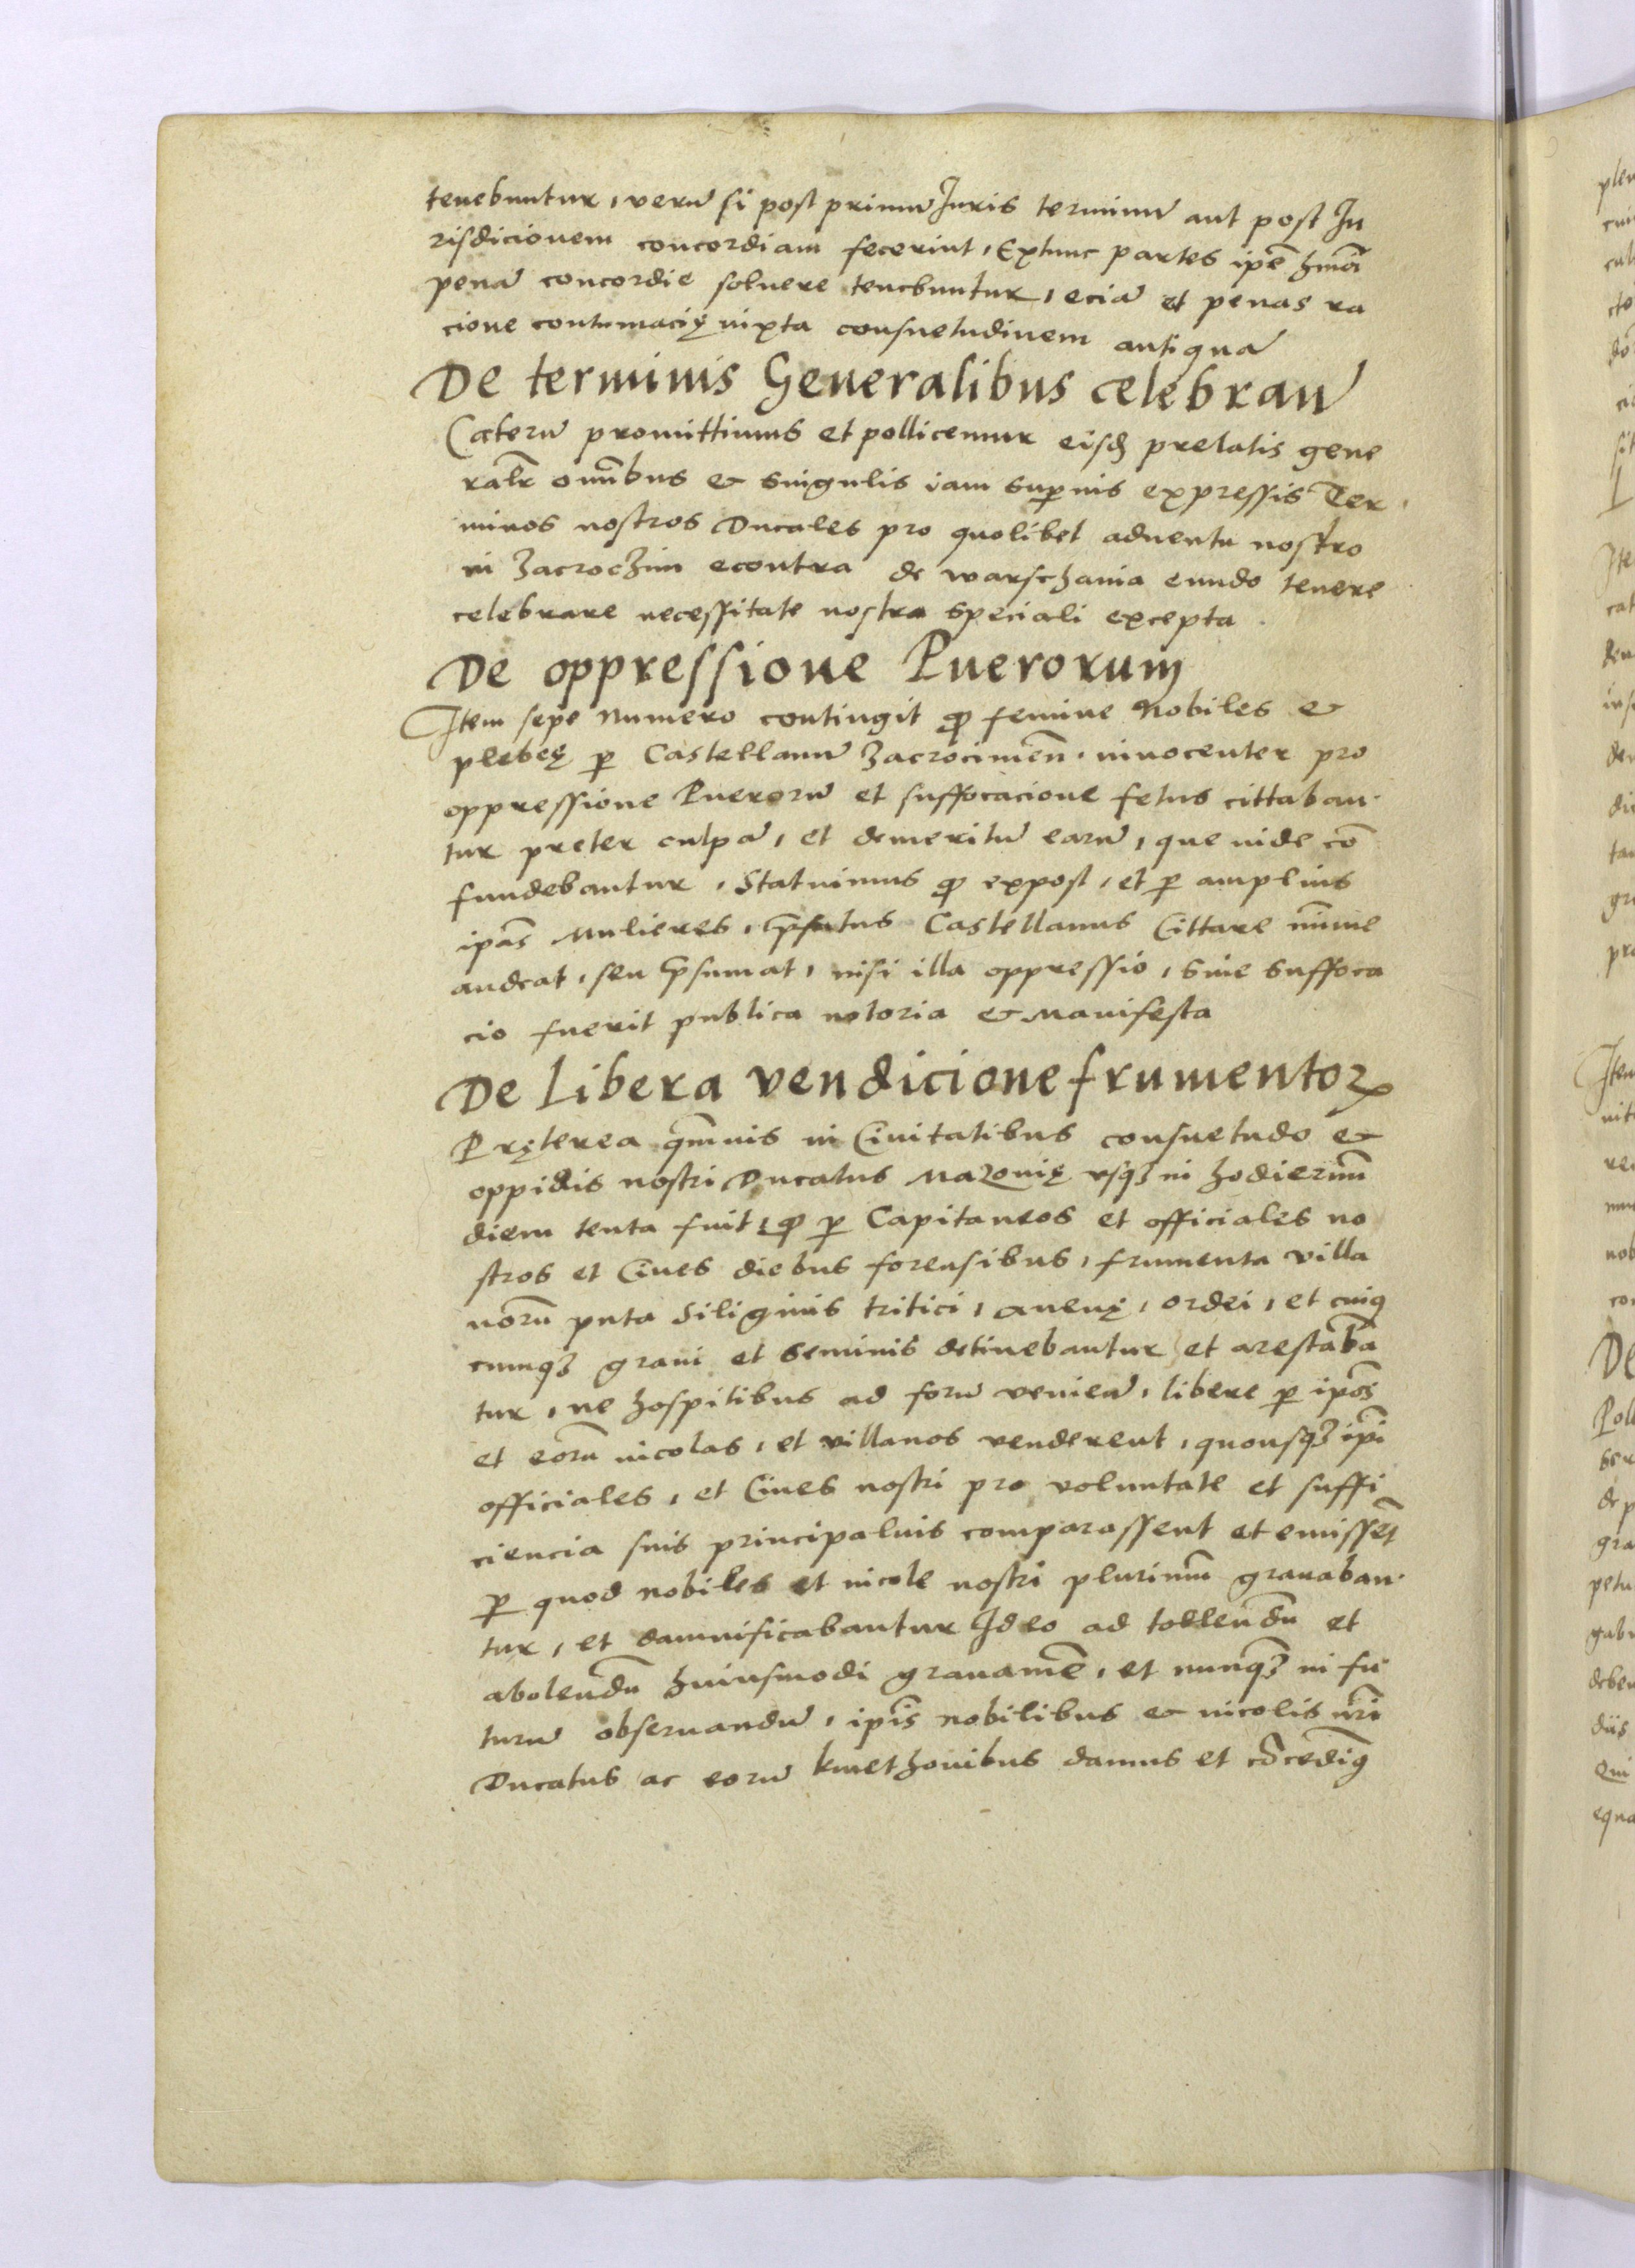 tenebuntur, verū si post primū Juris terminū aut post Ju
risdicionem concordiam fecerint, Extunc partes ip̄e hm̄oi
penā concordie soluere tenebuntur, eciā et penas ra
cione contumacię iuxta consuetudinem antiquā
De terminis Generalibus celebran̄
Cæterū promittimus et pollicemur eisdē prelatis gene
ralr̄ om̄ibus & singulis iam superius expressis Ter
minos nostros Ducales pro quolibet aduentu nostro
in Zacrochim econtra de warschauia eundo tenere
celebrare necessitate nostra speciali excepta.
De oppressione Puerorum
Item sepe numero contingit ꝙ femine Nobiles &
plebeę ꝑ Castellanū Zacrocimen̄. innocenter pro
oppressione Puerorū et suffocacione fetus cittaban
tur preter culpā, et demeritū earū, que inde cō
fundebantur, Statuimus ꝙ expost, et ꝑ amplius
ip̄as Mulieres, p̄fatus Castellanus Cittare mīme
audeat, seu p̄sumat, nisi illa oppressio, siue suffoca
cio fuerit publica notoria & Manifesta
De Libera vendicione frumentoꝝ
Pręterea qm̄uis in Ciuitatibus consuetudo &
oppidis nostri Ducatus Mazouię vsqꝫ in hodiernū
diem tenta fuit, ꝙ ꝑ Capitaneos et officiales no
stros et Ciues diebus forensibus, frumenta villa
norū puta Siliginis tritici, auenę, ordei, et cuiꝰ
cumqꝫ grani et Seminis detinebantur et arestabā
tur, ne hospitibus ad forū venien̄, libere ꝑ ip̄os
et eorū incolas, et villanos venderent, quousqꝫ ip̄i
officiales, et Ciues nostri pro voluntate et suffi
ciencia suis principaluis comparassent et emissēt
ꝑ quod nobiles et incole nostri plurimū grauaban
tur, et damnificabantur Ideo ad tollendū et
abolendū huiusmodi grauamē, et nunqꝫ in fu
turū obseruandū, ip̄is nobilibus & incolis nr̄i
Ducatus ac eorū kmethonibus damus et cōcedimꝰ